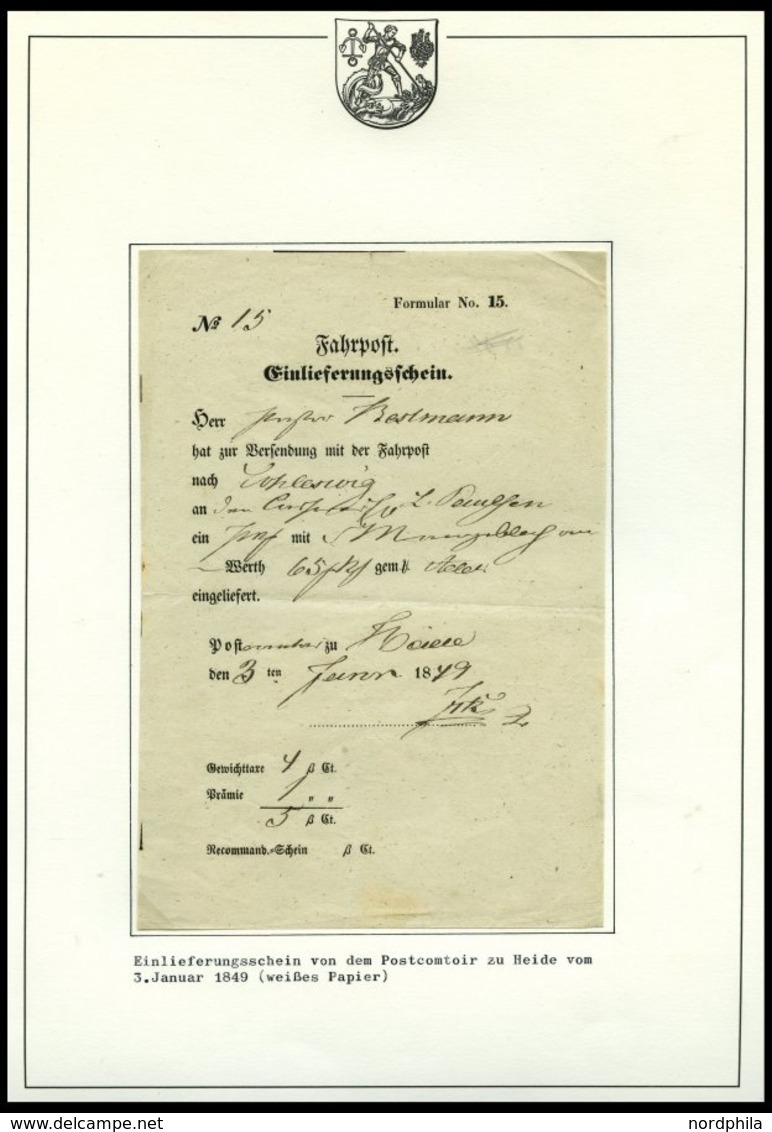 Formular No. 15.
№ 15
Fahrpost.
Einlieferungsschein.
Herr Bestmann
hat zur Versendung mit der Fahrpost
nach Schleswig
an den
ein mit
Werth 65 gem.
eingeliefert.
Post zu Heide
den 3 ten Januar 1849
Gewichttaxe 4 β Ct.
Prämie 1 " "
5 β Ct.
Recommand.=Schein β Ct.
Einlieferungsschein von dem Postcomtoir zu Heide vom
3.Januar 1849 (weißes Papier)
www.delcampe.net
nordphila